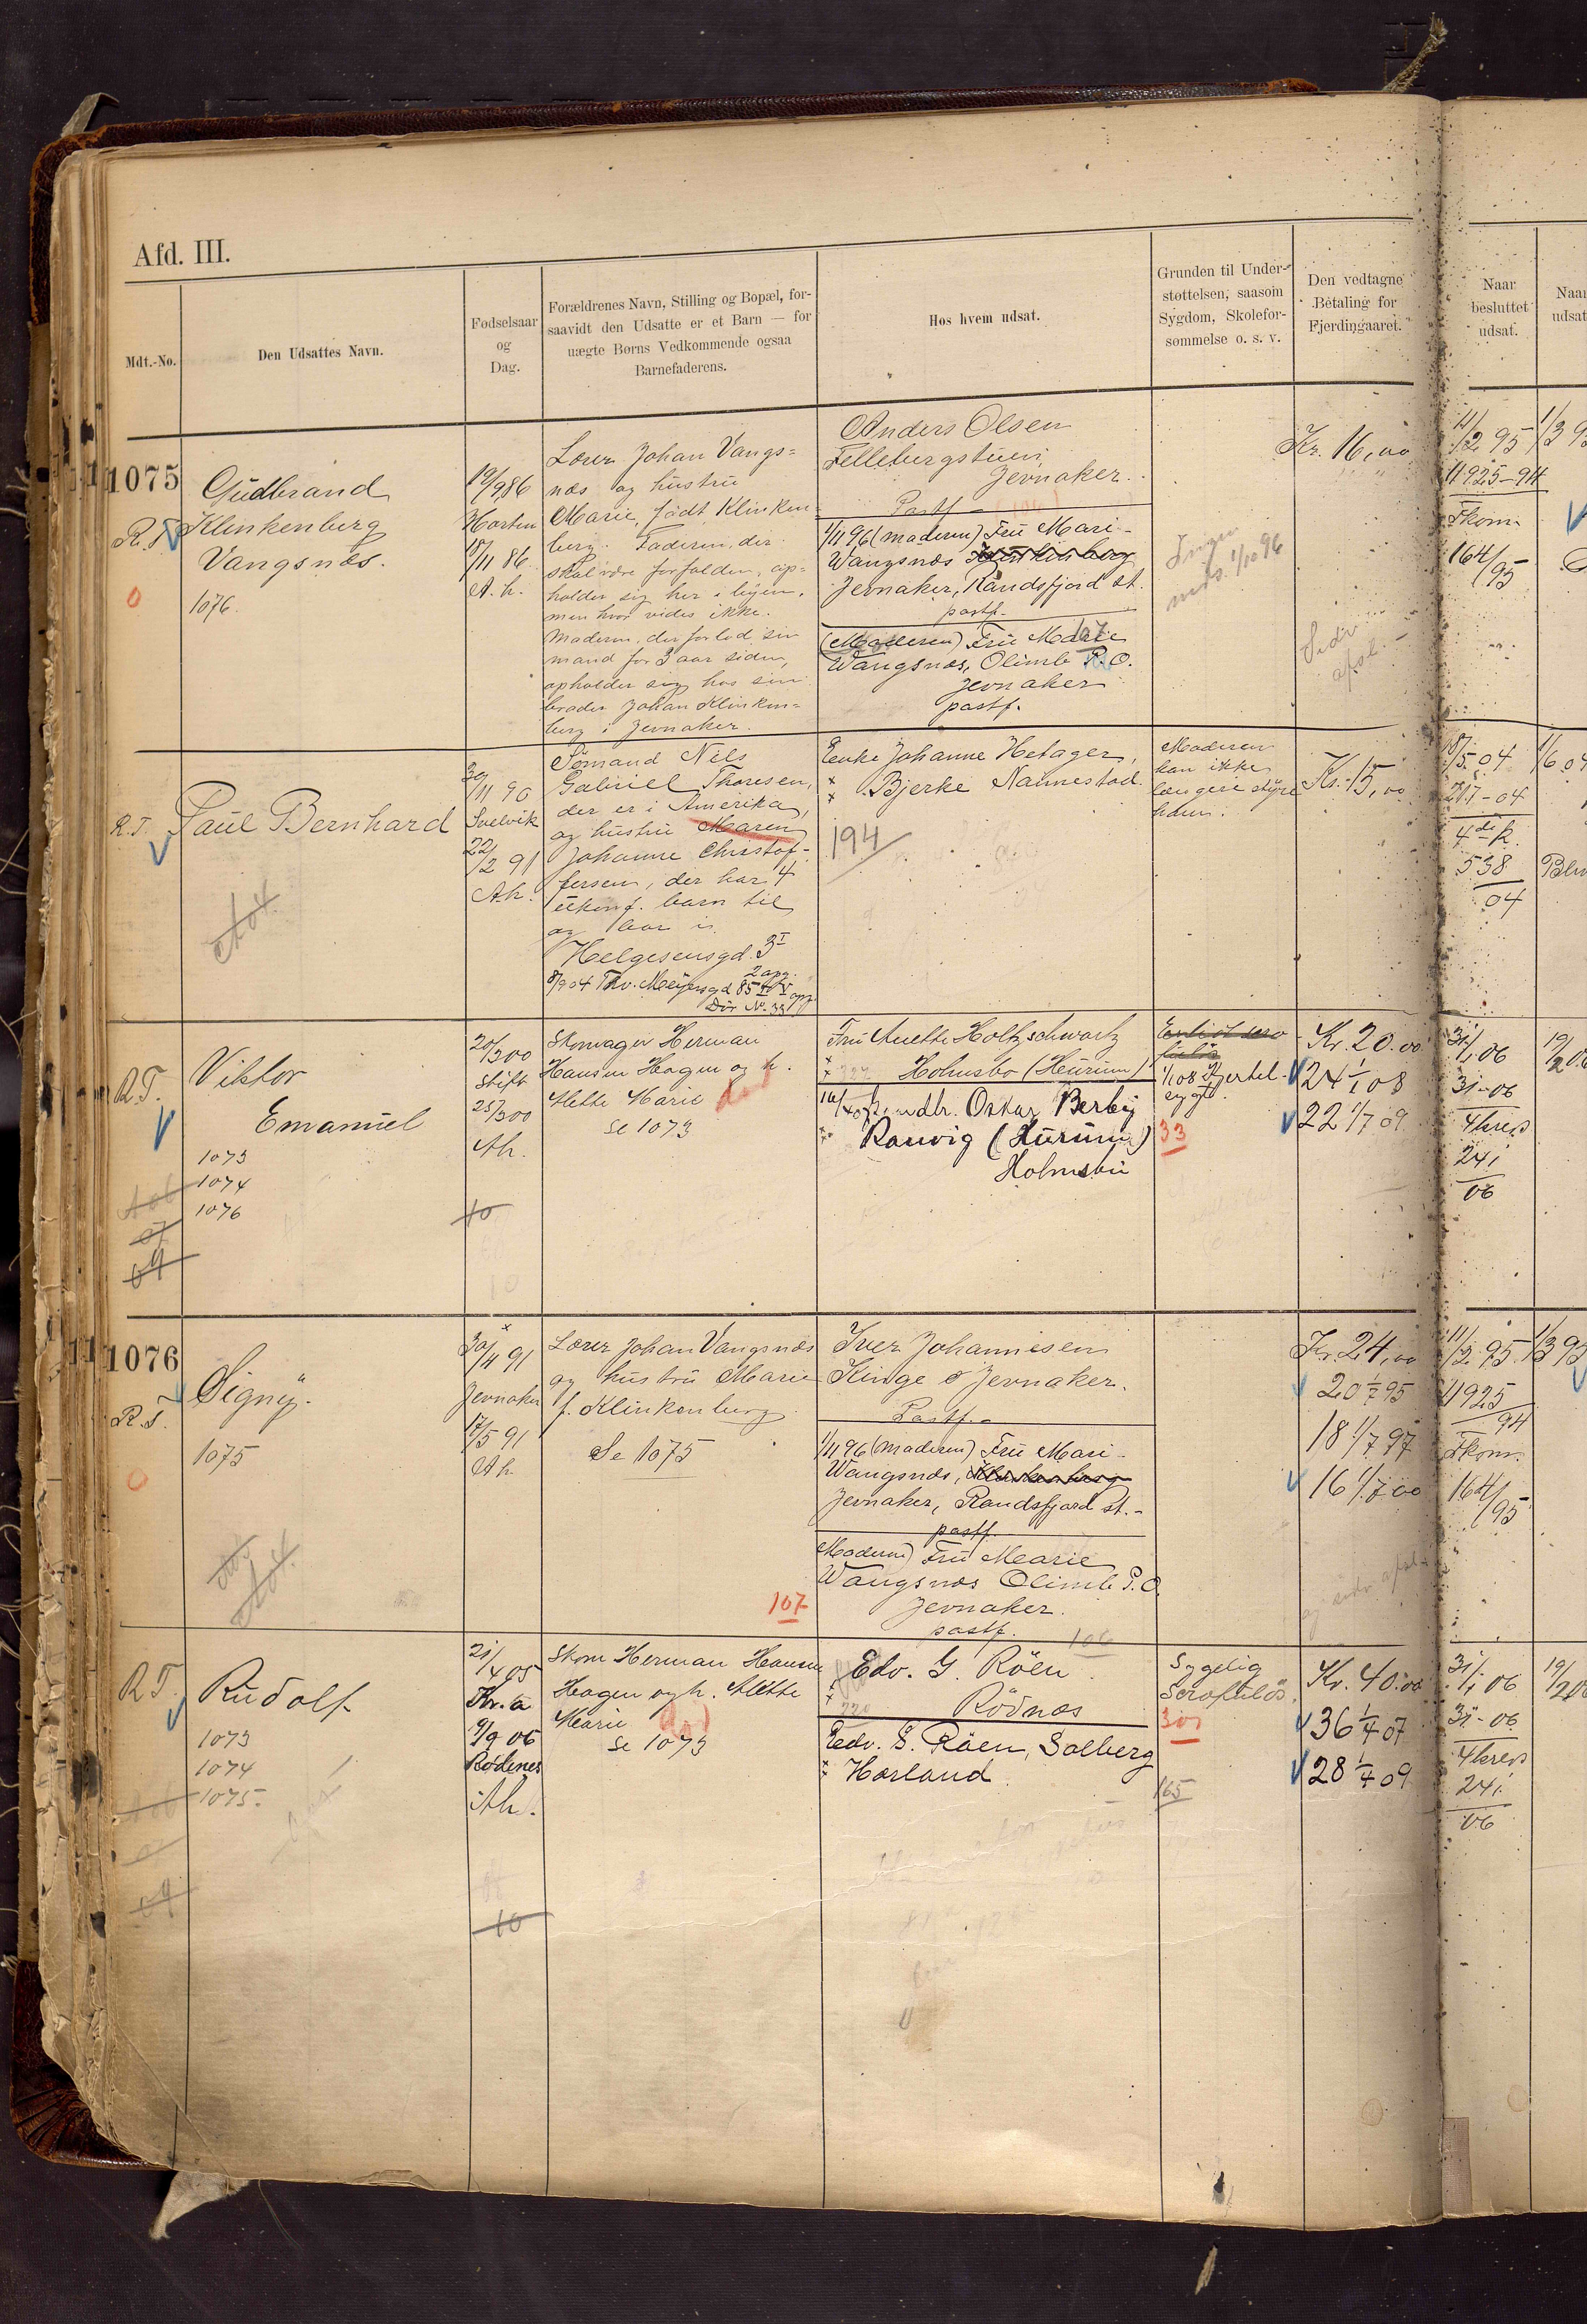 Afd. III.
Mdt.-No.
Den Udsattes Navn.
Fødselsaar
og
Dag.
Forældrenes Navn, Stilling og Bopæl, for-
saavidt den Udsatte er et Barn — for
uægte Børns Vedkommende ogsaa
Barnefaderens.
Hos hvem udsat.
Grunden til Under-
støttelsen, saasom
Sygdom, Skolefor-
sømmelse o. s. v.
Den vedtagne
Betaling for
Fjerdingaaret.
Naar
besluttet
udsat.
Naar
udsat
1075
R.T.
Gudbrand
Klinkenberg
Vangsnæs.
1076.
19/9 86
Horten
18/11 86
A. h.
Lærer Johan Vangs=
næs og hustru
Marie, født Klinken-
berg. Faderen, der
skal være forfalden, op=
holder sig her i byen,
men hvor vides ikke.
Moderen, der forlod sin
mand for 3 aar siden,
opholder sig hos sin
broder Johan Klinken=
berg i Jevnaker.
Anders Olsen
Fellebergstuen,
Jevnaker.
Postf.
1/11 96 (moderen) Fru Mari-
Wangsnæs Klinkenberg
Jevnaker, Randsfjord st.
postf.
(Moderen) Fru Marie
Wangsnæs, Olimb P.O.
Jevnaker
postf.
1/10 96
Kr. 16,00
11/2 95
11925-94
Fkom.
164/95
1/3 95
R.T.
Paul Bernhard
30/11 90
Svelvik
22/2 91
A.h.
Sømand Nils
Gabriel Thoresen,
der er i Amerika,
og hustru Maren
Johanne Christof-
fersen, der har 4
ukonf. barn til
og bor i
Helgesensgd. 3 I
2 opg.
8/9 04 Thv. Meyersgd 85 V opg.
Dør No. 33
Enke Johanne Hetager,
Bjerke Nannestad.
194
Moderen
kan ikke
længere styre
ham.
Kr. 15,00
18/5 04
217-04
4de k.
538
04
1/6 04
R.T.
Viktor
Emanuel
1073
1074
1076
20/3 00
Skift
25/3 00
Ah.
10
Skomager Herman
Hansen Hagen og h.
Alette Marie
se 1073
Fru Anette Holtzschwartz
Holmsbo (Hurum)
Oskar Berby
Ranvig (Hurum)
Holmsbu
1/1 08 Hjertel-
syg.
33
Kr. 20.00
24 1/1 08
22 1/7 09
31/1 06
31-06
4kreds
241
06
19/2 06
1076
R.T.
Signy.
1075
30/4 91
Jevnaker
17/5 91
Ah
Lærer Johan Vangsnæs
og hustru Marie
f. Klinkenberg
Se 1075
107
Iver Johannesen
Kinge i Jevnaker.
Postf.
1/11 96 (Moderen) Fru Mari-
Wangsnæs, Klinkenberg
Jevnaker, Randsfjord st.-
postf.
Moderen) Fru Marie
Wangsnæs Olimb P.O.
Jevnaker.
postf.
106
Kr. 24,00
20 1/7 95
18 1/7 97
16 1/7 00
11/2 95
11925
94
Fkom.
164/95
1/3 95
R.T.
Rudolf
1073
1074
1075.
21/4 05
Kr.a
9/9 06
Rødenes
Ah.
10
Skom Herman Hansen
Hagen og h. Alette
Marie
se 1073
Edv. G. Röen
Rödnæs
Edv. G. Röen, Solberg
Hærland
Sygelig
Scrofuløs.
301
165
Kr. 40.00
36 1/4 07
28 1/4 09
31/1 06
31-06
4kreds
241
06
19/2 06